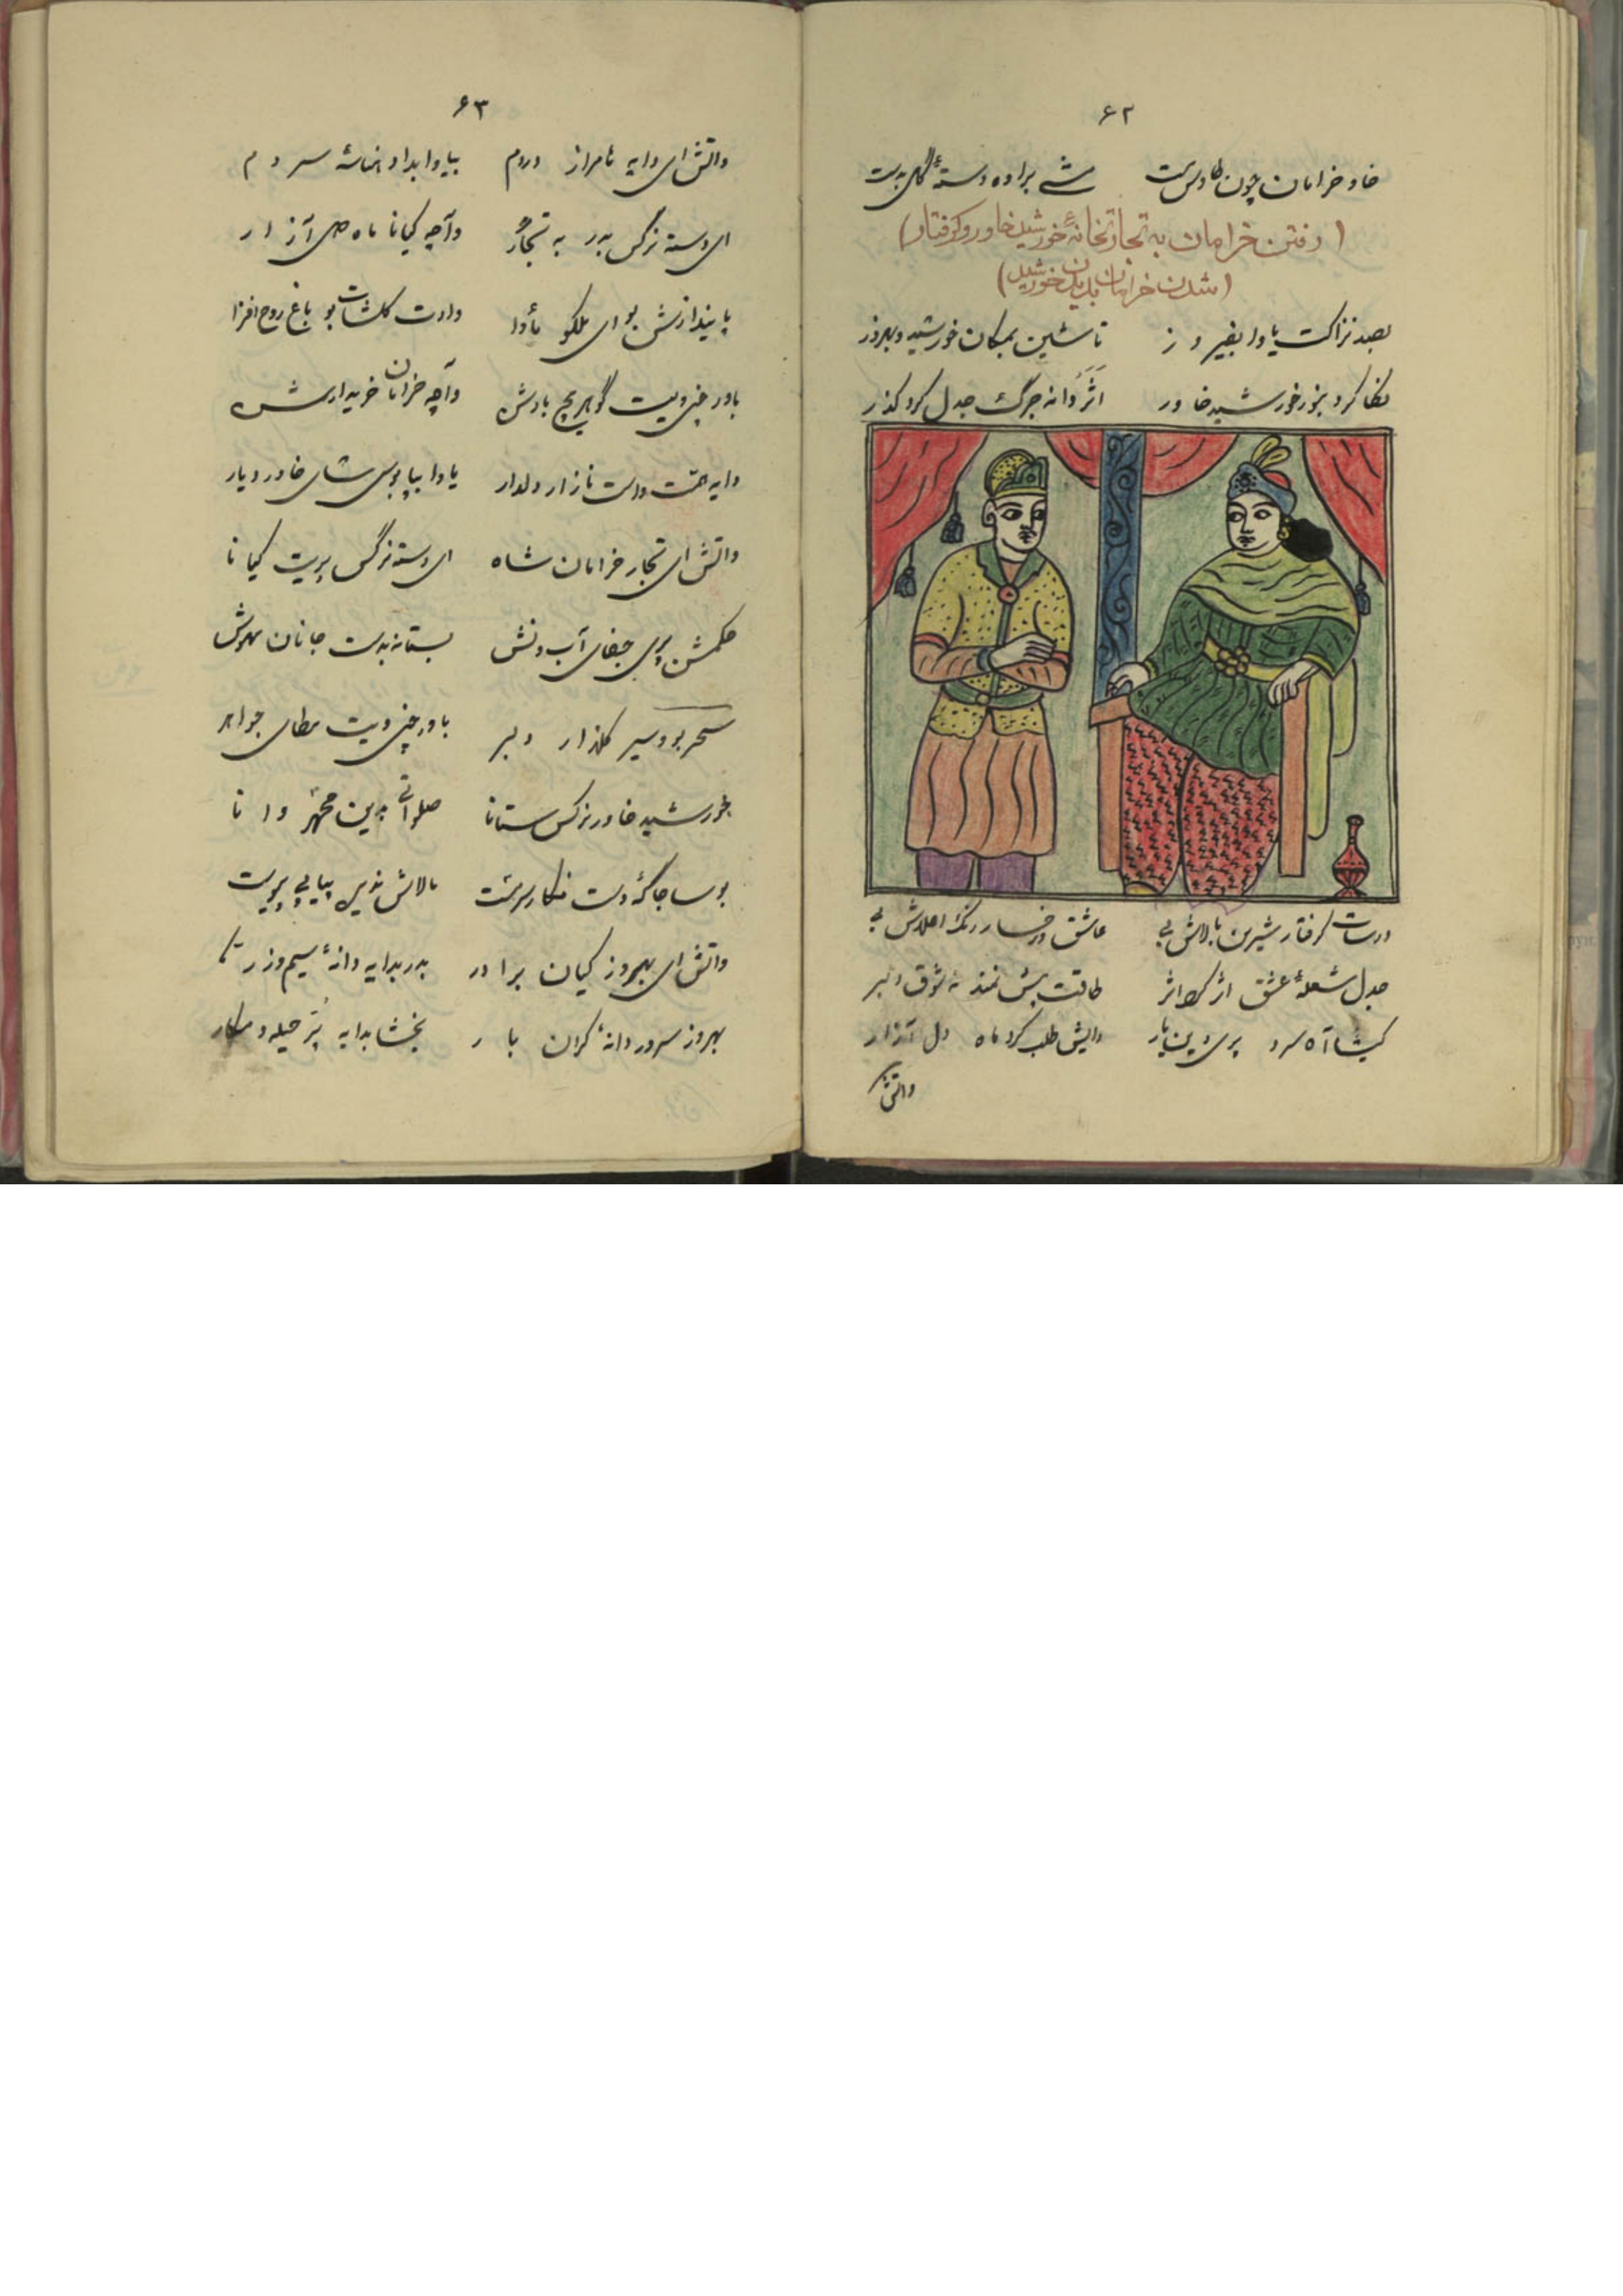 ۶۲
خاو خرامان چون طاوس مست مشے براوه دستهٔ گل بدست
(رفتن خرامان به تجارتخانهٔ خورشید خاور و گرفتار)
(شدن خرامان بدیدن خورشید)
بصد نزاکت یاوا بفیروز تا نشین بمکان خورشید و بهروز
نگا کرد بنور خورشید خاور اثر دانه جرگ جدل کرد گذر
درسات گرفتار شیرین بالاش بی عاشق و رخسار رنگ اطلاش بی
جدل شعلهٔ عشق اژ کرد اثر طاقت پیش نمند نه شوق دلبر
کیشا آه سرد پری دین یار دایش طلب کرد ماه دل آزار
واتش
۶۳
واتش ای دایه نامراز دردم بیاوا بداد سردم
ای دسته نرگس بدر به تجار واچه کیانا ماه دل آزار
پا ینداز نش بو ای ملکو مأوا دارت گلشات بو باغ روح افزا
باور چنی ویت گوهر بارش واچه خرامان خریدارش
دایه دست نازار دلدار یاوا بپا بوس شای خاور دیار
واتش ای تجار خرامان شاه ای دسته نرگس پریت کیانا
حکمش پری جفای آب و بستانه بدست جانان مهوش
سحر بو و سیر گلذار دلبر باور چنی ویت جواهر
خورشید خاور نرگس ستانا صلواتی بدین محمّد وانا
بوسا جاگهٔ دست نگار سرمست مالاش بدین پیاپی پریت
واتش ای بهروز کیان برادر بدر بدایه دانهٔ سیم و زر
بهروز سرور دانهٔ گران بار بخشا بدایه پر حیله و مکار